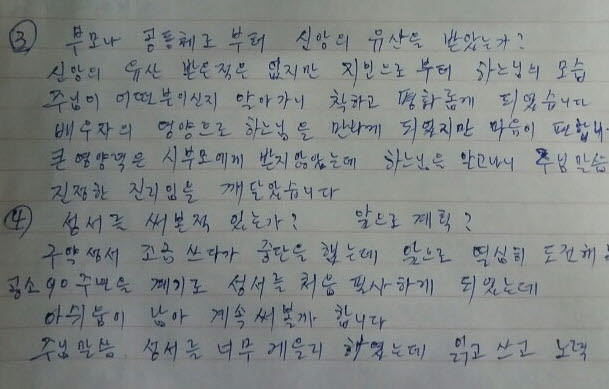 ③ 부모나 공동체로 부터 신앙의 유산을 받았는가?
신앙의 유산 받은적은 없지만 지인으로 부터 하느님의 모습
주님이 어떤분이신지 알아가니 착하고 평화롭게 되였습니다
배우자의 영향으로 하느님을 만나게 되였지만 마음이 편합니
큰 영양력은 시부모에게 받지않았는데 하느님을 알고나니 주님 말씀
진정한 진리임을 깨달았습니다
④ 성서를 써본적 있는가? 앞으로 계획?
구약성서 조금 쓰다가 중단을 했는데 앞으로 열심히 도전해
공소 90주년을 계기로 성서를 처음 필사하게 되였는데
아쉬움이 남아 계속 써볼까 합니다
주님말씀 성서를 너무 게을리 하였는데 읽고 쓰고 노력